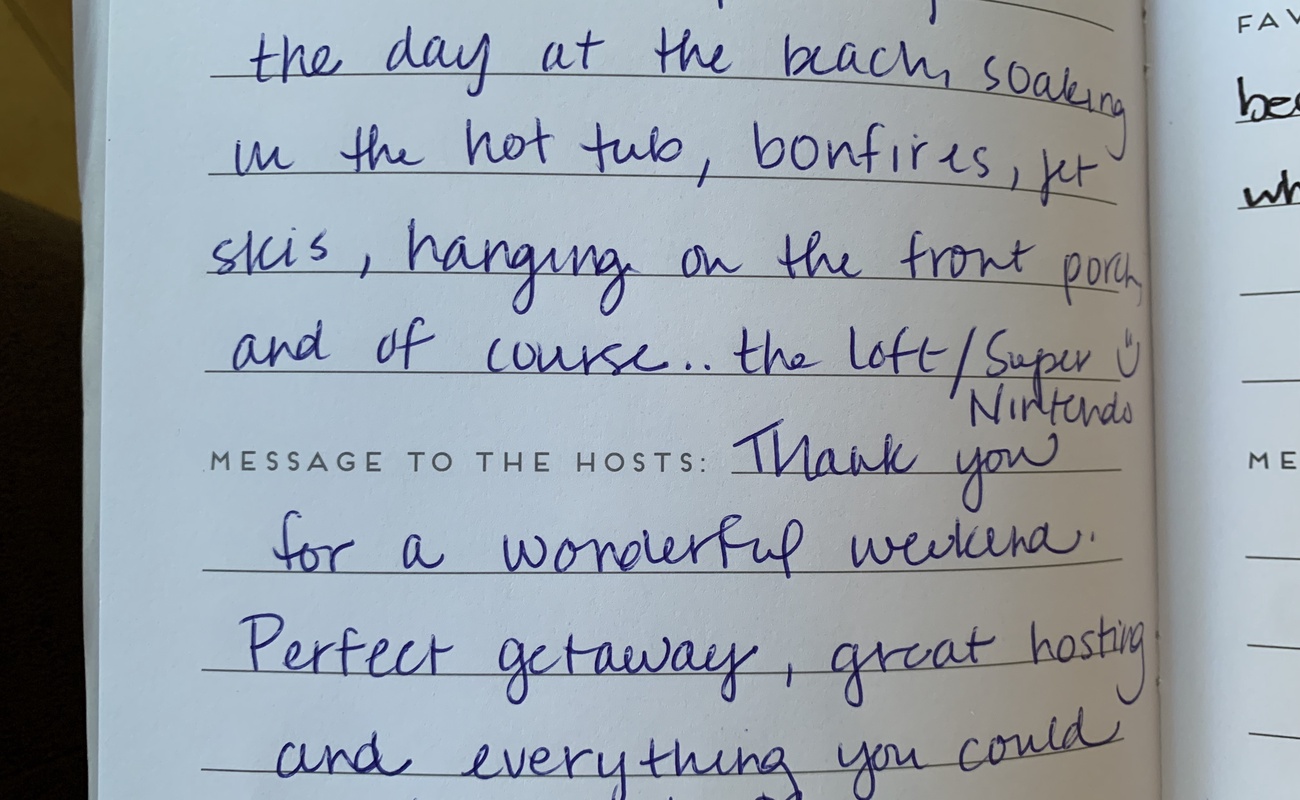 the day at the beach, soaking
in the hot tub, bonfires, jet
skis, hanging on the front porch,
and of course.. the loft/Super
Nintendo
MESSAGE TO THE HOSTS: Thank you
for a wonderful weekend.
Perfect getaway, great hosting
and everything you could
FAV
bec
wh
ME